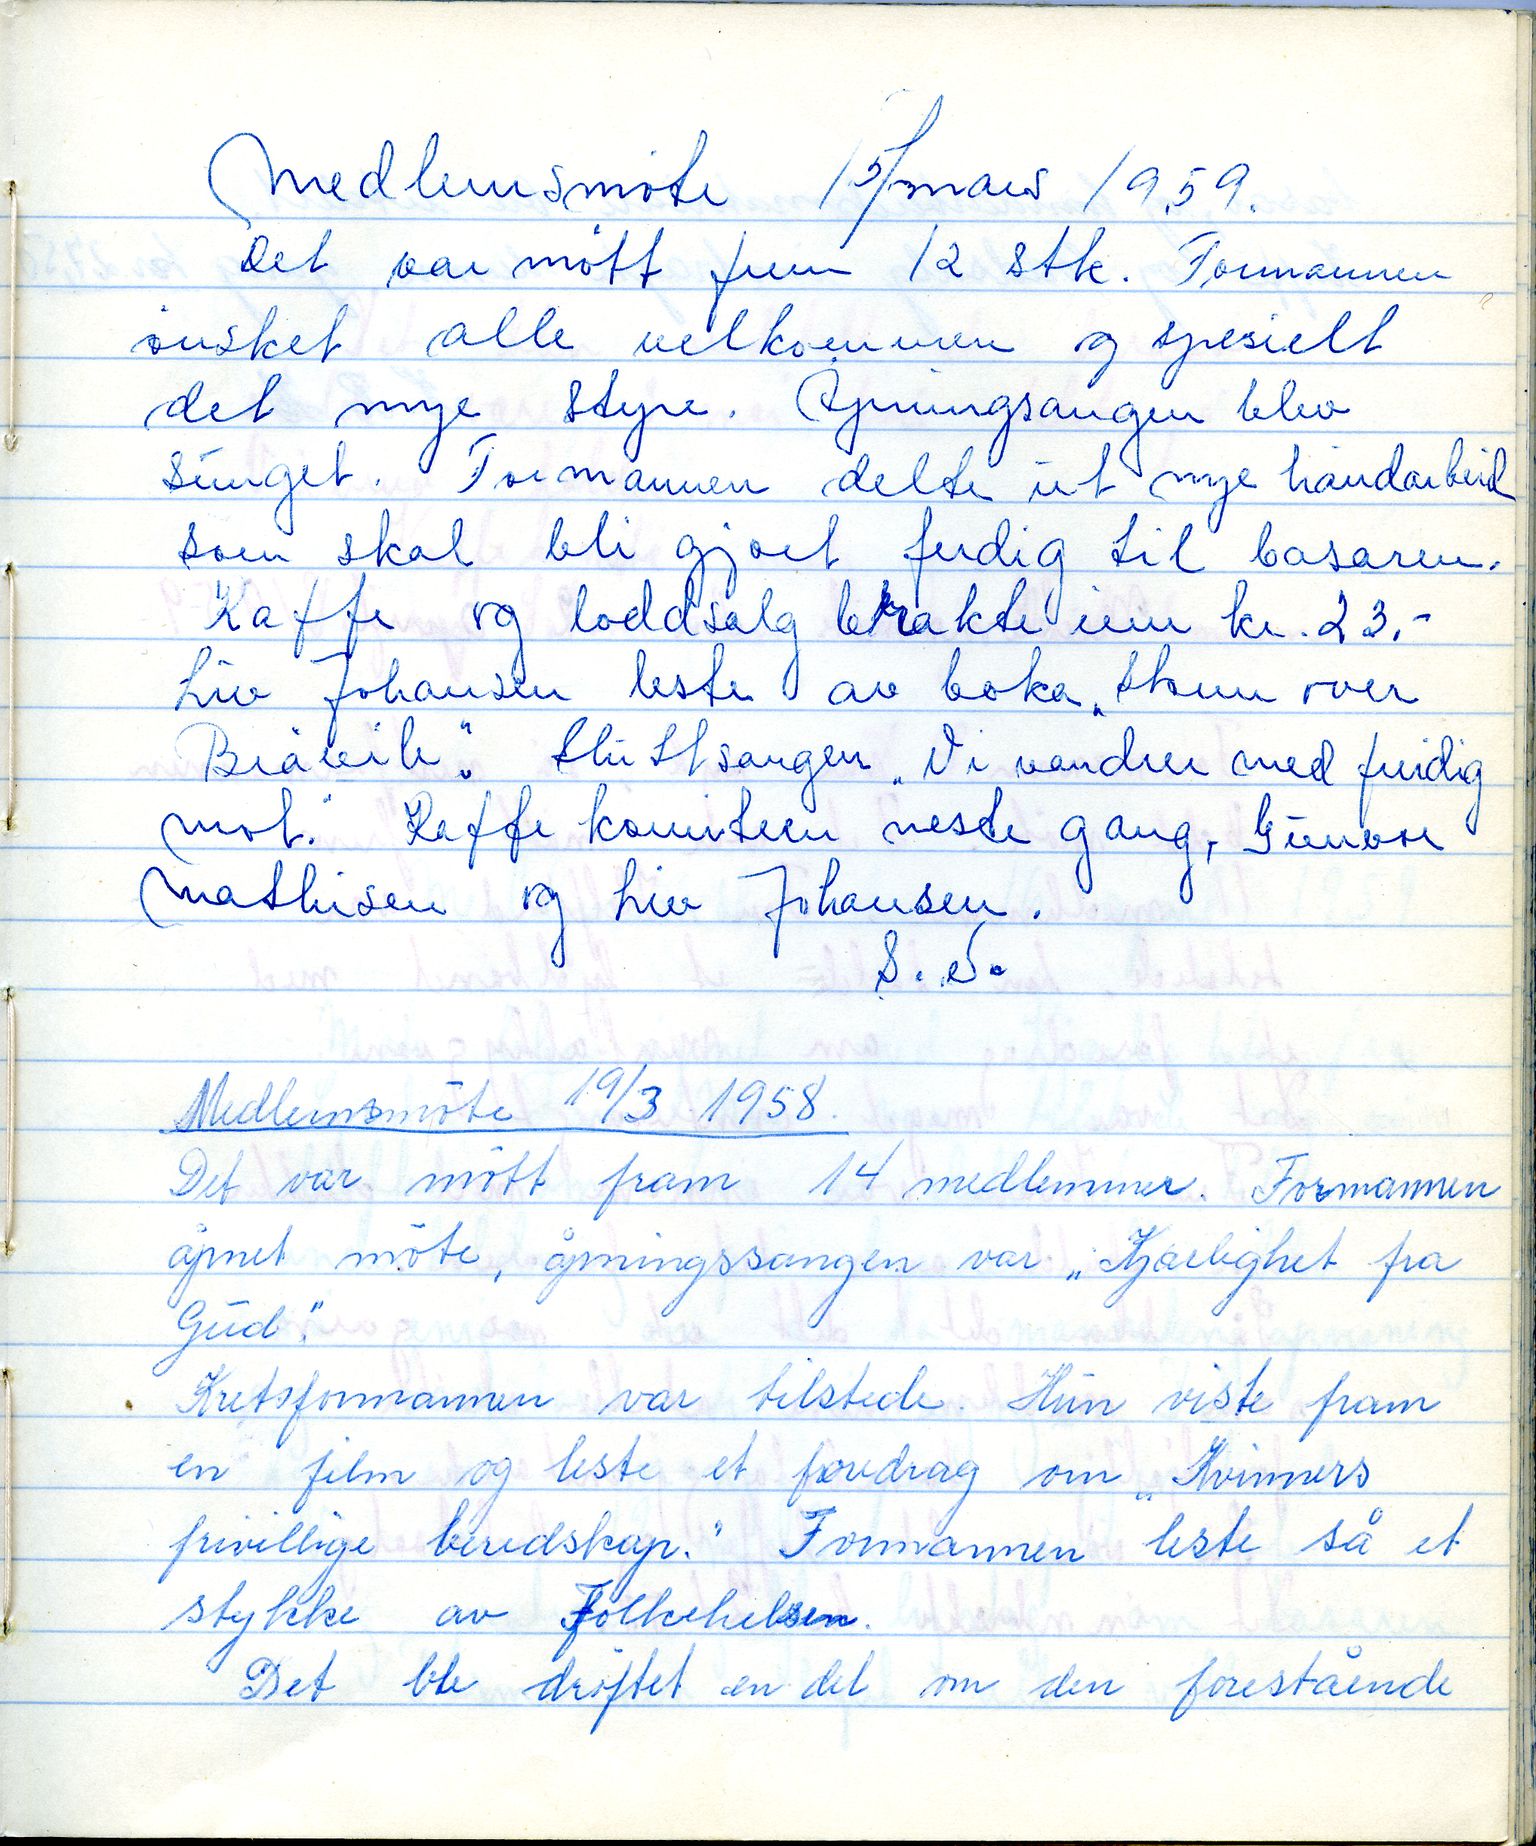 Medlemsmöte 5/mars 1959.
Det var mött frem 12 stk. Formannen
önsket alle velkommen og spesielt
det nye styre. Åpningsangen blev
sunget. Formannen delte ut nye håndarbeid
som skal bli gjort ferdig til basaren.
Kaffe og loddsalg brakte inn kr. 23.-
Liv Johansen leste av boka „Storm over
Bråvik". Sluttsangen „Vi vandrer med freidig
mot." Kaffe komiteen neste gang, Gunvor
Mathisen og Liv Johansen.
S. S.
Medlemsmöte 19/3 1958.
Det var mött fram 14 medlemmer. Formannen
åpnet möte, åpningssangen var „Kjærlighet fra
Gud".
Kretsformannen var tilstede. Hun viste fram
en film og leste et foredrag om „Kvinners
frivillige beredskap." Formannen leste så et
stykke av Folkehelsen.
Det ble dröftet en del om den forestående